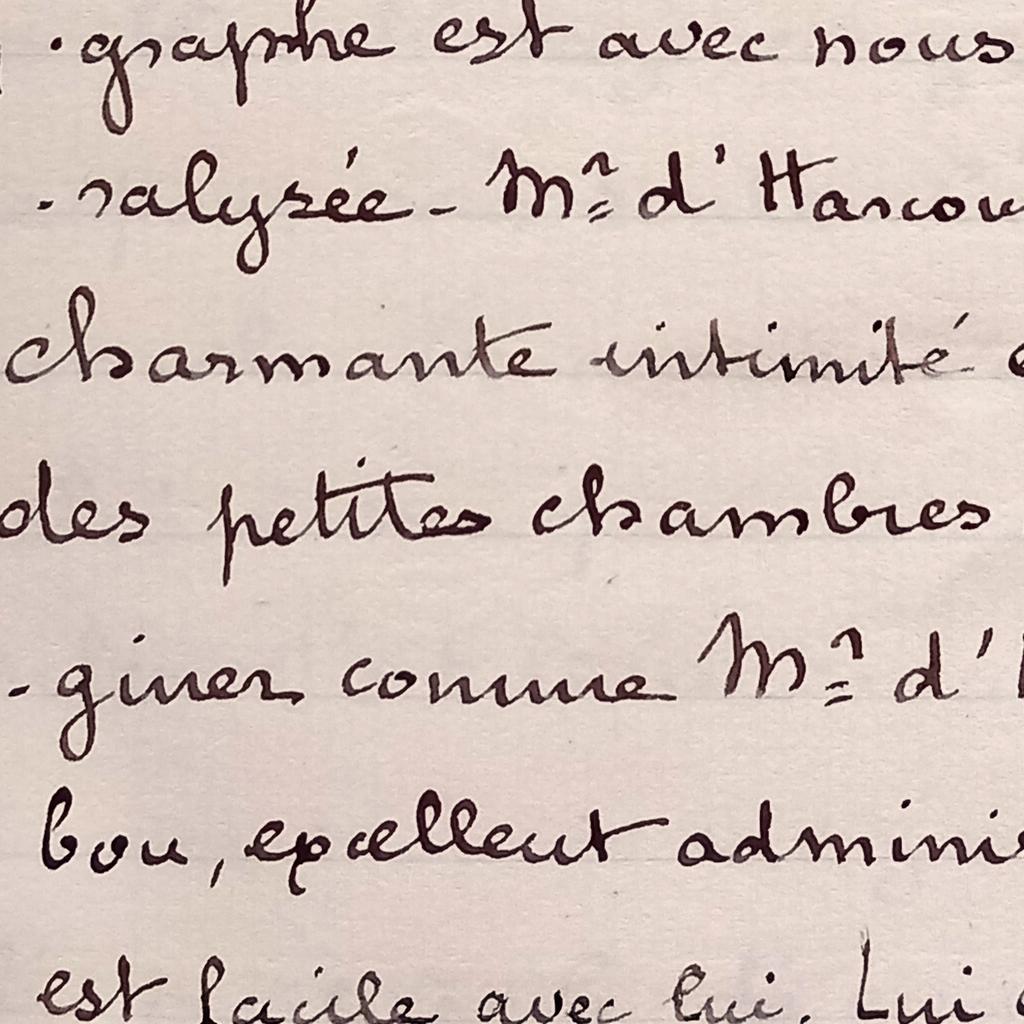 -graphe est avec nous
-ralysée - Mr d'Harcou
charmante intimité
des petites chambres
-giner comme Mr d'
bon, excellent admini
est facile avec lui. Lui